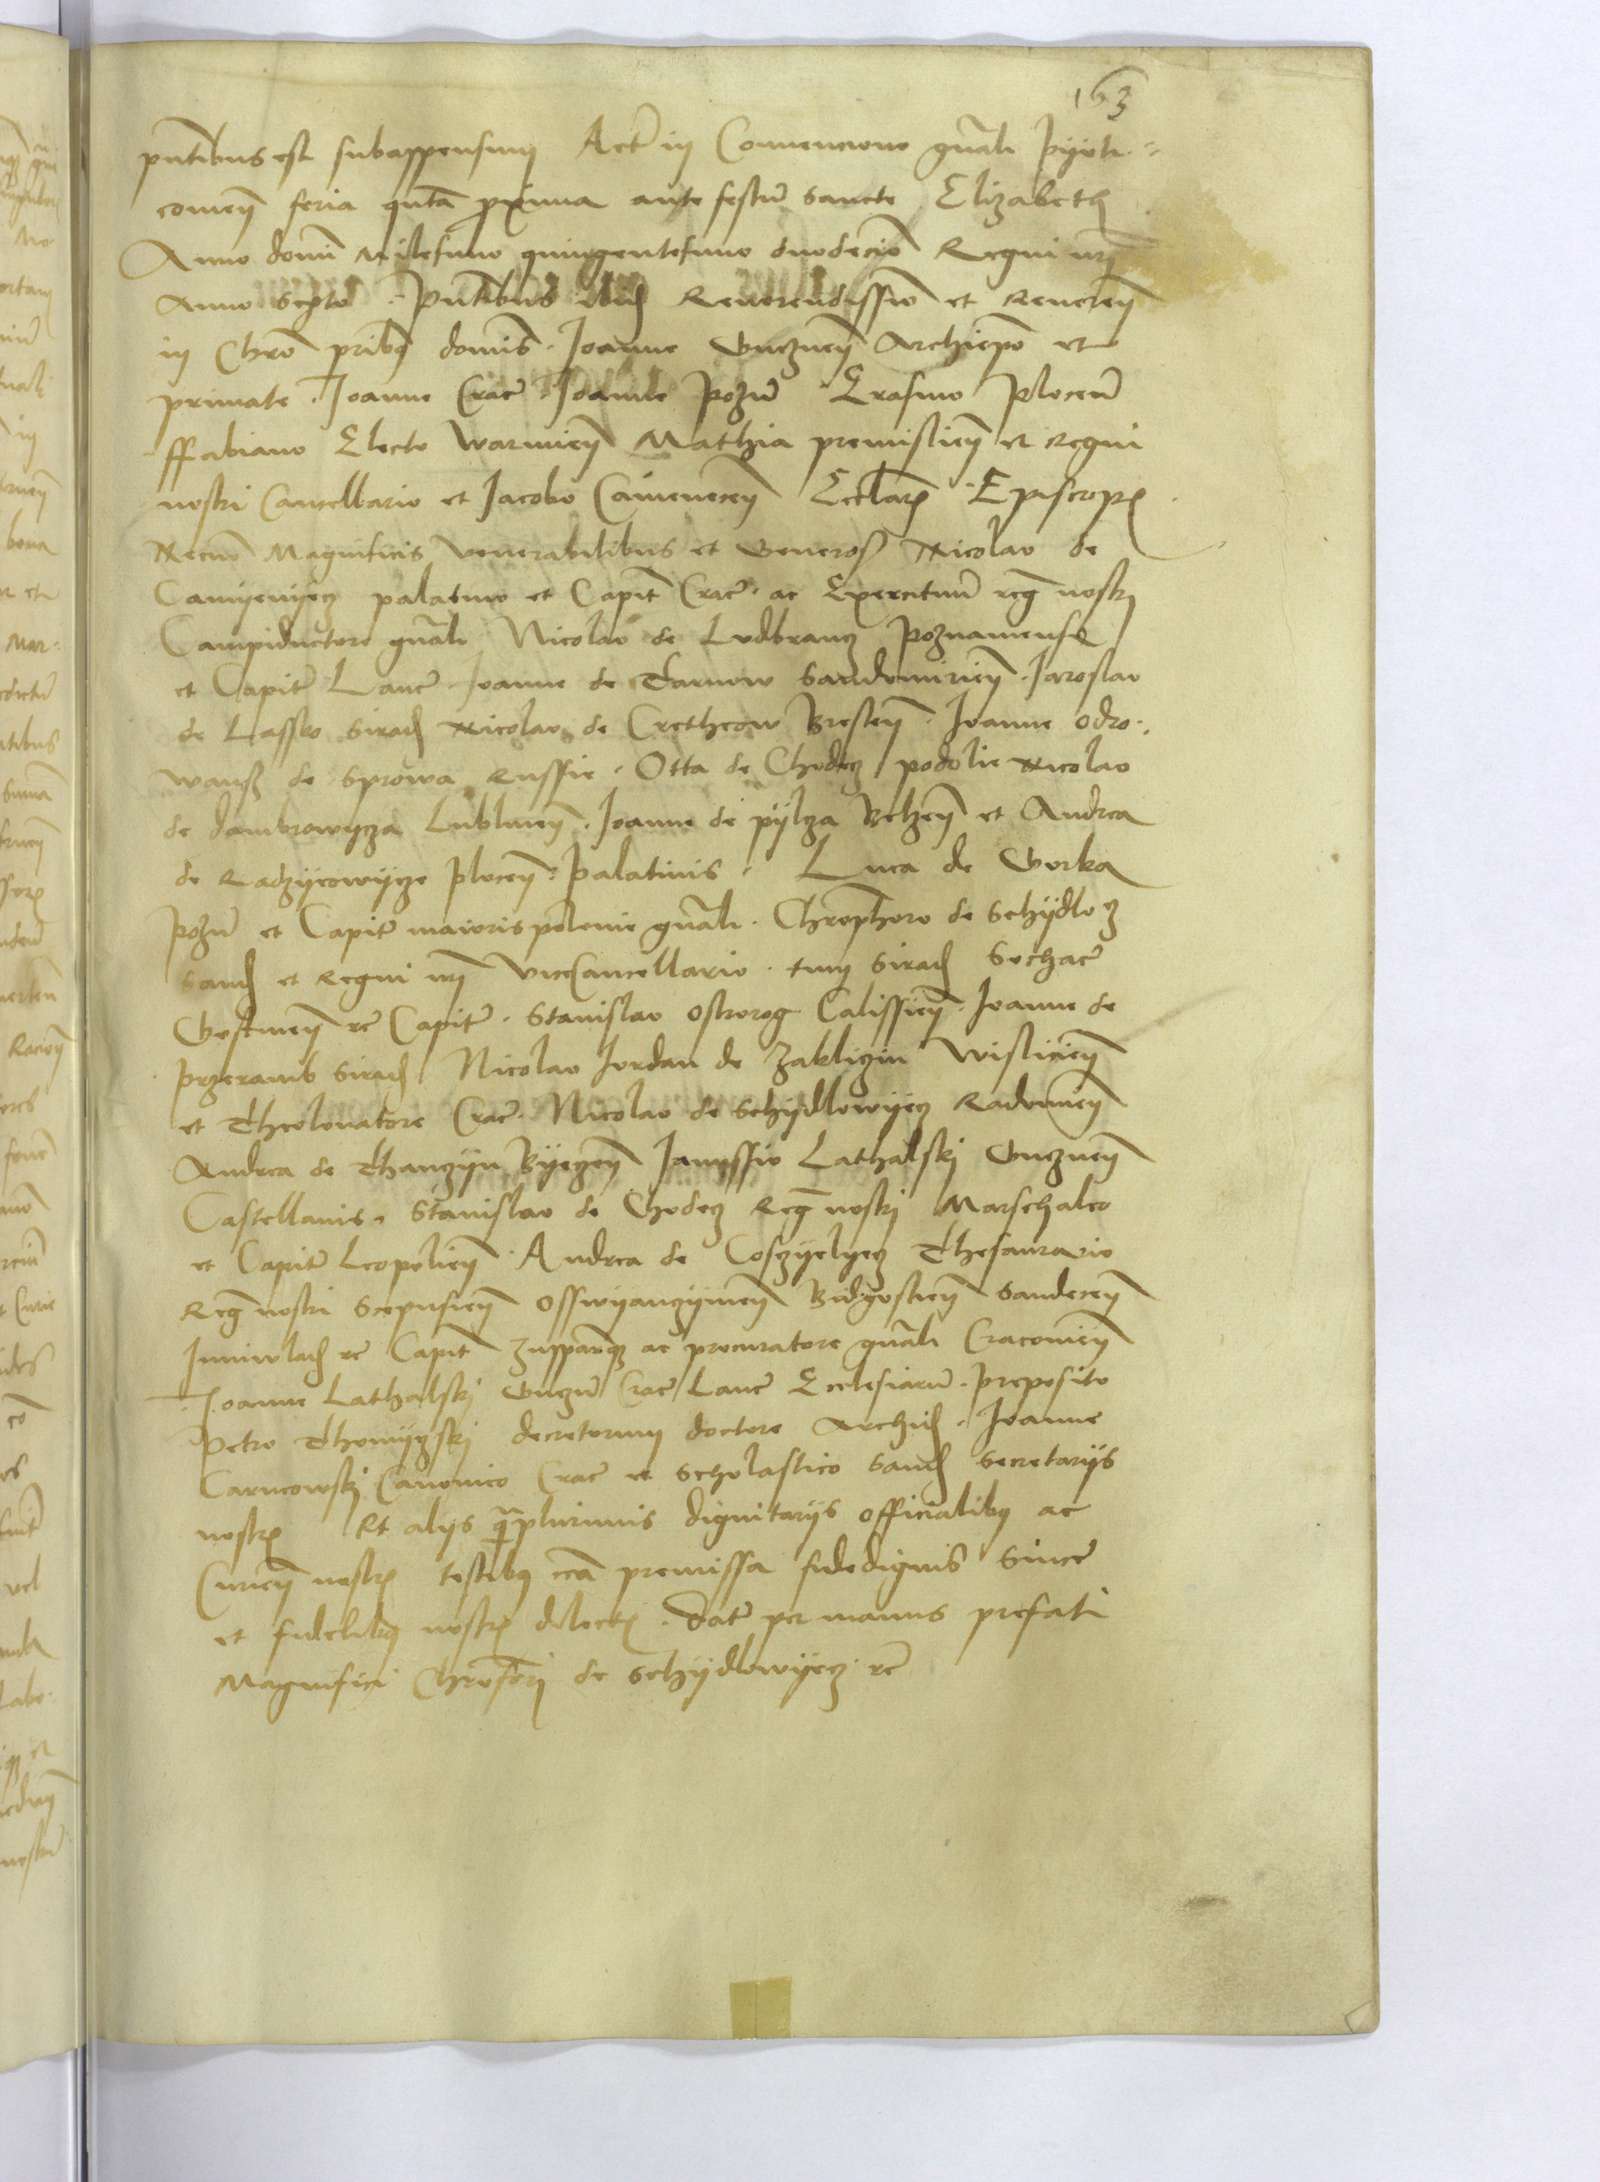 163
pntibus est subappensum Actu in Conuencione gnali Pyotr-
comien feria qnta proxima ante festu sancte Elizabeth
Anno domi Milesimo quingentesimo duodecio Regni nri
Anno sexto . Pntibus ibid Reuerendissio et Reueren
in Chro prib9 domis . Joanne Gneznen Archiepo et
primate . Joanne Crac Joanne Pozn Erasmo Plocen
ffabiano Electo Warmien Mathia premislien et regni
nostri Cancellario et Jacobo Camenecen Ecclar Episcop
Necno Magnificis Venerabilibus et Generos Nicolao de
Camyenyecz palatino et Capit Crac ac Exercituu reg nostri
Campiductore gnali Nicolao de Ludbrancz Poznaniense
et Capit Lanc Joanne de Tarnow Sandomirien . Jaroslao
de Lassko Sirad Nicolao de Cretkow Bresten . Joanne Odro-
wansz de Sprowa Russie . Otta de Chodecz podolie Nicolao
de dambrowycza Lublinen . Joanne de pylcza Belzen et Andrea
de Radzyeowycze plocen . Palatinis . Luca de Gorka
Pozn et Capit maioris polonie gnali . Chrophoro de Schydlo cz
Sand et Regni nri ViceCancellario . tum Sirad Sochac
Gostinen rc Capit . Stanislao Ostrorog Calissien . Joanne de
Przeramb Sirad Nicolao Jordan de Zakliczin Wislicien
et Theolonatore Crac . Nicolao de Schydlowyecz Radomien
Andrea de Thanczyn Byeczen Janussio Lathalski Gneznen
Castellanis . Stanislao de Chodecz Reg nostri Marschalco
et Capit Leopolien . Andrea de Cosczyelyecz Thesaurario
Reg nostri Scepusien Osswyanczymen Bidgostien Sandecen
Juniwlad rc Capit zuppariq ac procuratore gnali Cracouien
Joanne Lathalski Gnezn Crac Lanc Ecclesiaru . Preposito
Petro Thomyczski decretorum doctore Archid . Joanne
Carncowski Canonico Crac et Scholastico Sand Secretarys
nostr Et alys qplurimis dignitarys officialib9 ac
Curien nostr testib9 cca premissa fidedignis Since
et fidelib9 nostr dilect . Dat per manus prefati
Magnifici Chrofori de Schydlowyecz rc